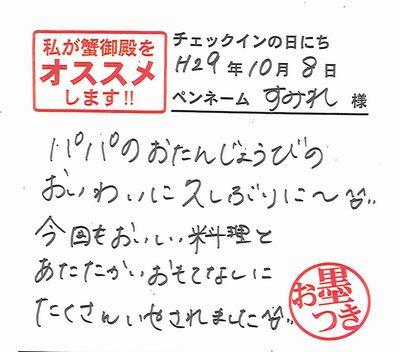 私が蟹御殿を
オススメ
します!!
チェックインの日にち
H29年10月8日
ペンネーム すみれ 様
パパのおたんじょうびの
おいわいに久しぶりに〜
今回もおいしい料理と
あたたかいおもてなしに
たくさんいやされました
お墨つき